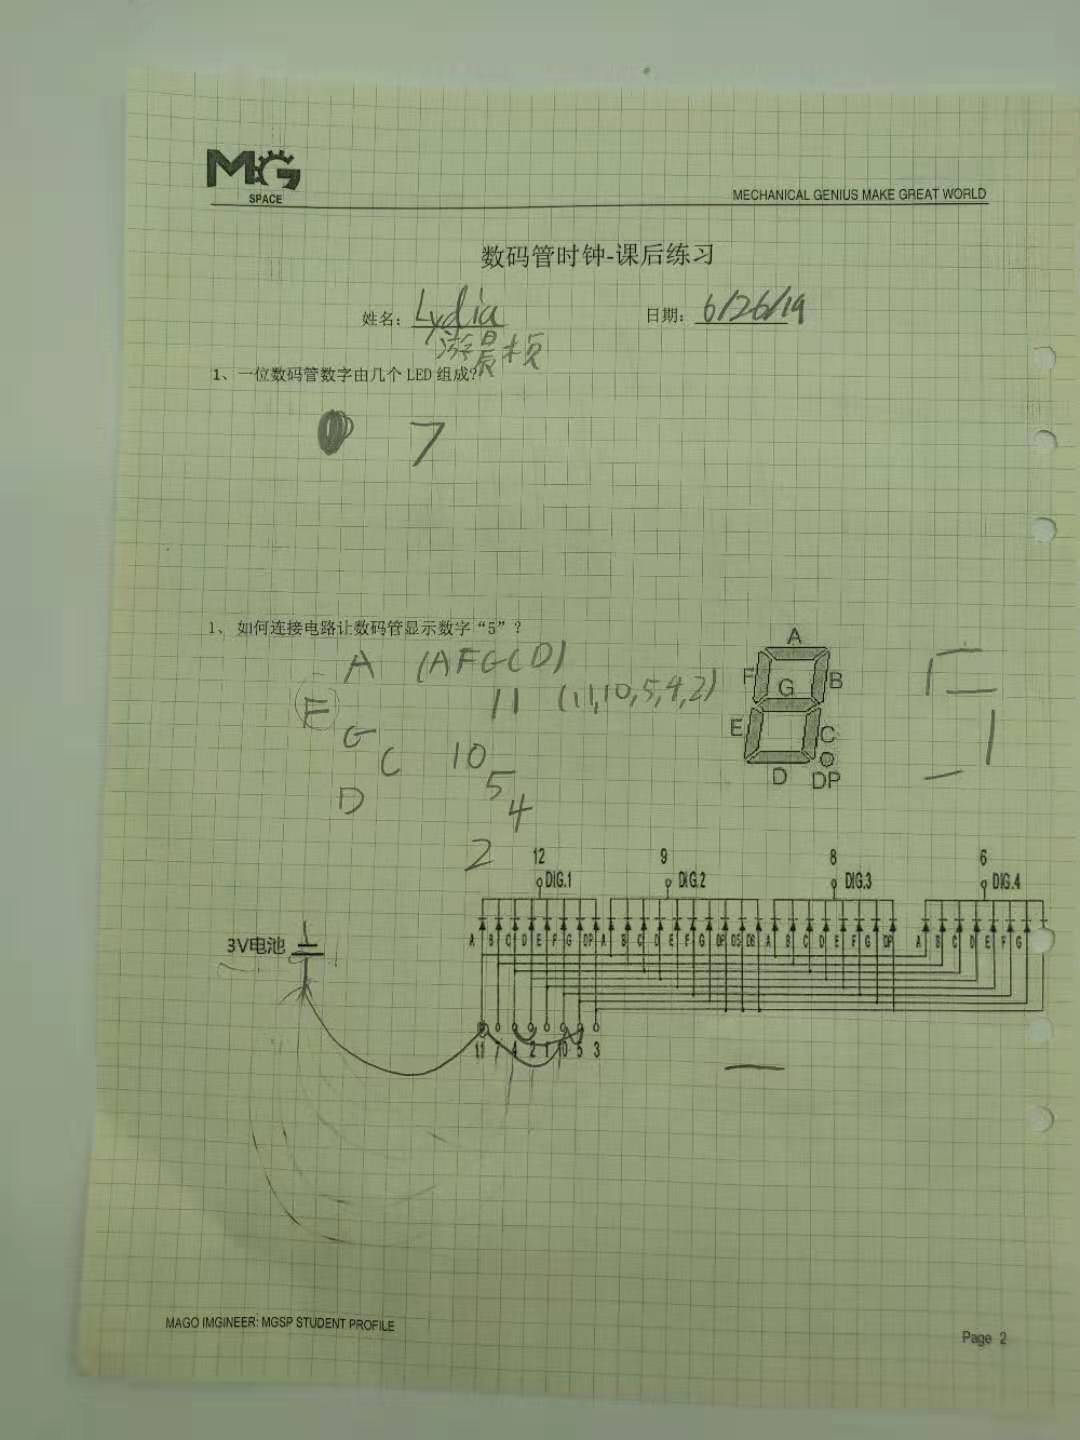 MG
SPACE
MECHANICAL GENIUS MAKE GREAT WORLD
数码管时钟-课后练习
姓名: Lydia
日期: 6/26/19
游晨桢
1、一位数码管数字由几个 LED 组成?
7
1、如何连接电路让数码管显示数字“5”?
A (AFGCD)
F 11 (11,10,5,4,2)
G
C 10
5
D 4
2
A
F G B
E C
D DP
12 9 8 6
DIG.1 DIG.2 DIG.3 DIG.4
3V电池
A B C D E F G DP A B C D E F G DP D5 D6 A B C D E F G DP A B C D E F G
11 7 4 2 1 10 5 3
MAGO IMGINEER: MGSP STUDENT PROFILE
Page 2